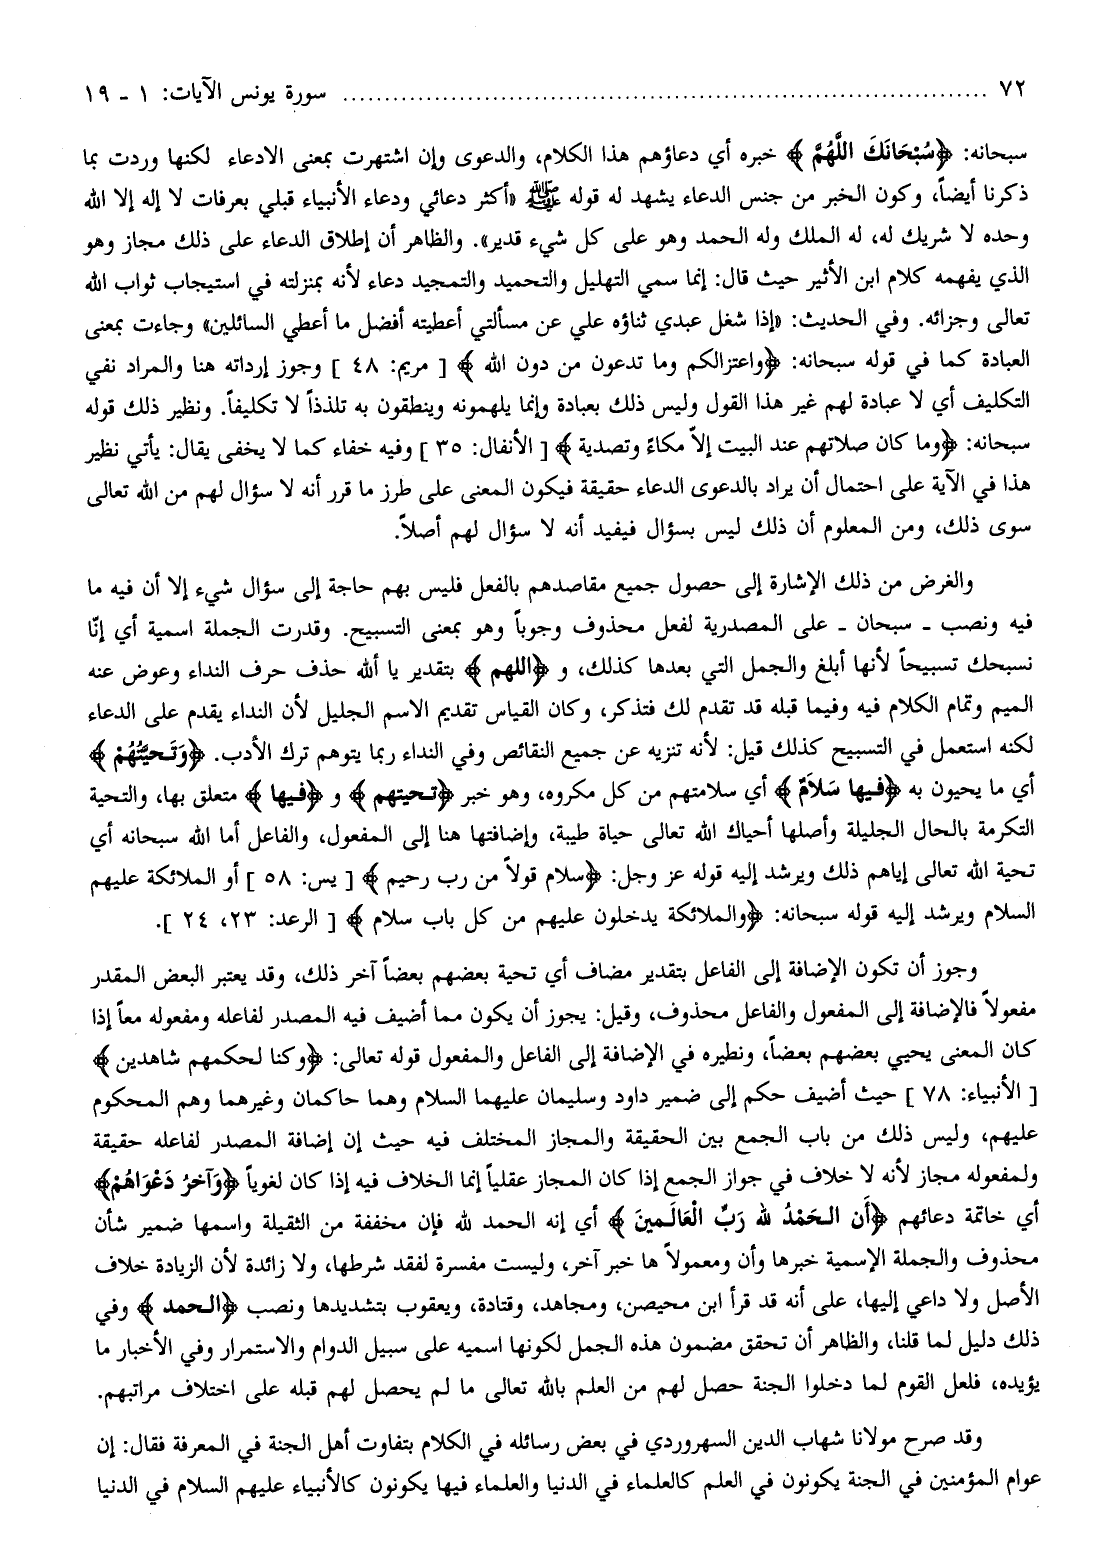 ٧٢ ........................................ سورة يونس الآيات: ١ ـ ١٩
سبحانه: ﴿سُبْحَانَكَ اللَّهُمَّ﴾ خبره أي دعاؤهم هذا الكلام، والدعوى وإن اشتهرت بمعنى الادعاء لكنها وردت بما
ذكرنا أيضاً، وكون الخبر من جنس الدعاء يشهد له قوله ﷺ «أكثر دعائي ودعاء الأنبياء قبلي بعرفات لا إله إلا الله
وحده لا شريك له، له الملك وله الحمد وهو على كل شيء قدير». والظاهر أن إطلاق الدعاء على ذلك مجاز وهو
الذي يفهمه كلام ابن الأثير حيث قال: إنما سمي التهليل والتحميد والتمجيد دعاء لأنه بمنزلته في استيجاب ثواب الله
تعالى وجزائه. وفي الحديث: «إذا شغل عبدي ثناؤه علي عن مسألتي أعطيته أفضل ما أعطي السائلين» وجاءت بمعنى
العبادة كما في قوله سبحانه: ﴿واعتزالكم وما تدعون من دون الله﴾ [ مريم: ٤٨ ] وجوز إرداته هنا والمراد نفي
التكليف أي لا عبادة لهم غير هذا القول وليس ذلك بعبادة وإنما يلهمونه وينطقون به تلذذاً لا تكليفاً. ونظير ذلك قوله
سبحانه: ﴿وما كان صلاتهم عند البيت إلاّ مكاءً وتصدية﴾ [ الأنفال: ٣٥ ] وفيه خفاء كما لا يخفى يقال: يأتي نظير
هذا في الآية على احتمال أن يراد بالدعوى الدعاء حقيقة فيكون المعنى على طرز ما قرر أنه لا سؤال لهم من الله تعالى
سوى ذلك، ومن المعلوم أن ذلك ليس بسؤال فيفيد أنه لا سؤال لهم أصلاً.
والغرض من ذلك الإشارة إلى حصول جميع مقاصدهم بالفعل فليس بهم حاجة إلى سؤال شيء إلا أن فيه ما
فيه ونصب ـ سبحان ـ على المصدرية لفعل محذوف وجوباً وهو بمعنى التسبيح. وقدرت الجملة اسمية أي إنّا
نسبحك تسبيحاً لأنها أبلغ والجمل التي بعدها كذلك، و ﴿اللهم﴾ بتقدير يا ألله حذف حرف النداء وعوض عنه
الميم وتمام الكلام فيه وفيما قبله قد تقدم لك فتذكر، وكان القياس تقديم الاسم الجليل لأن النداء يقدم على الدعاء
لكنه استعمل في التسبيح كذلك قيل: لأنه تنزيه عن جميع النقائص وفي النداء ربما يتوهم ترك الأدب. ﴿وَتَحيَّتُهُمْ﴾
أي ما يحيون به ﴿فيها سَلاَمٌ﴾ أي سلامتهم من كل مكروه، وهو خبر ﴿تحيتهم﴾ و ﴿فيها﴾ متعلق بها، والتحية
التكرمة بالحال الجليلة وأصلها أحياك الله تعالى حياة طيبة، وإضافتها هنا إلى المفعول، والفاعل أما الله سبحانه أي
تحية الله تعالى إياهم ذلك ويرشد إليه قوله عز وجل: ﴿سلام قولاً من رب رحيم﴾ [ يس: ٥٨ ] أو الملائكة عليهم
السلام ويرشد إليه قوله سبحانه: ﴿والملائكة يدخلون عليهم من كل باب سلام﴾ [ الرعد: ٢٣، ٢٤ ].
وجوز أن تكون الإضافة إلى الفاعل بتقدير مضاف أي تحية بعضهم بعضاً آخر ذلك، وقد يعتبر البعض المقدر
مفعولاً فالإضافة إلى المفعول والفاعل محذوف، وقيل: يجوز أن يكون مما أضيف فيه المصدر لفاعله ومفعوله معاً إذا
كان المعنى يحيي بعضهم بعضاً، ونطيره في الإضافة إلى الفاعل والمفعول قوله تعالى: ﴿وكنا لحكمهم شاهدين﴾
[ الأنبياء: ٧٨ ] حيث أضيف حكم إلى ضمير داود وسليمان عليهما السلام وهما حاكمان وغيرهما وهم المحكوم
عليهم، وليس ذلك من باب الجمع بين الحقيقة والمجاز المختلف فيه حيث إن إضافة المصدر لفاعله حقيقة
ولمفعوله مجاز لأنه لا خلاف في جواز الجمع إذا كان المجاز عقلياً إنما الخلاف فيه إذا كان لغوياً ﴿وَآخرُ دَعْوَاهُمْ﴾
أي خاتمة دعائهم ﴿أَن الحَمْدُ لله رَبِّ الْعَالَمينَ﴾ أي إنه الحمد لله فإن مخففة من الثقيلة واسمها ضمير شأن
محذوف والجملة الإسمية خبرها وأن ومعمولاً ها خبر آخر، وليست مفسرة لفقد شرطها، ولا زائدة لأن الزيادة خلاف
الأصل ولا داعي إليها، على أنه قد قرأ ابن محيصن، ومجاهد، وقتادة، ويعقوب بتشديدها ونصب ﴿الحمد﴾ وفي
ذلك دليل لما قلنا، والظاهر أن تحقق مضمون هذه الجمل لكونها اسميه على سبيل الدوام والاستمرار وفي الأخبار ما
يؤيده، فلعل القوم لما دخلوا الجنة حصل لهم من العلم بالله تعالى ما لم يحصل لهم قبله على اختلاف مراتبهم.
وقد صرح مولانا شهاب الدين السهروردي في بعض رسائله في الكلام بتفاوت أهل الجنة في المعرفة فقال: إن
عوام المؤمنين في الجنة يكونون في العلم كالعلماء في الدنيا والعلماء فيها يكونون كالأنبياء عليهم السلام في الدنيا